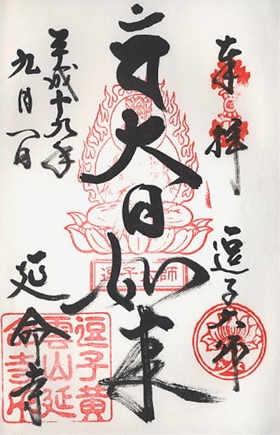 奉拝
逗子大師
大日如来
平成十九年
九月一日
延命寺
逗子大師
逗子黄
雲山延
命寺印